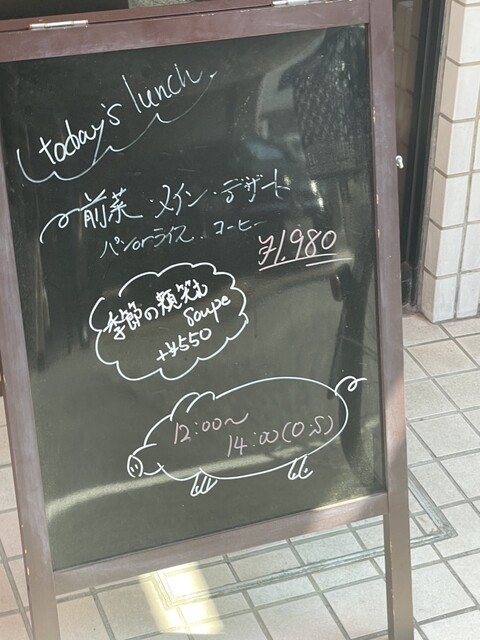 today's lunch
前菜・メイン・デザート
パンorライス、コーヒー
¥1,980
季節の
Soupe
+¥550
12:00〜
14:00(O.S)